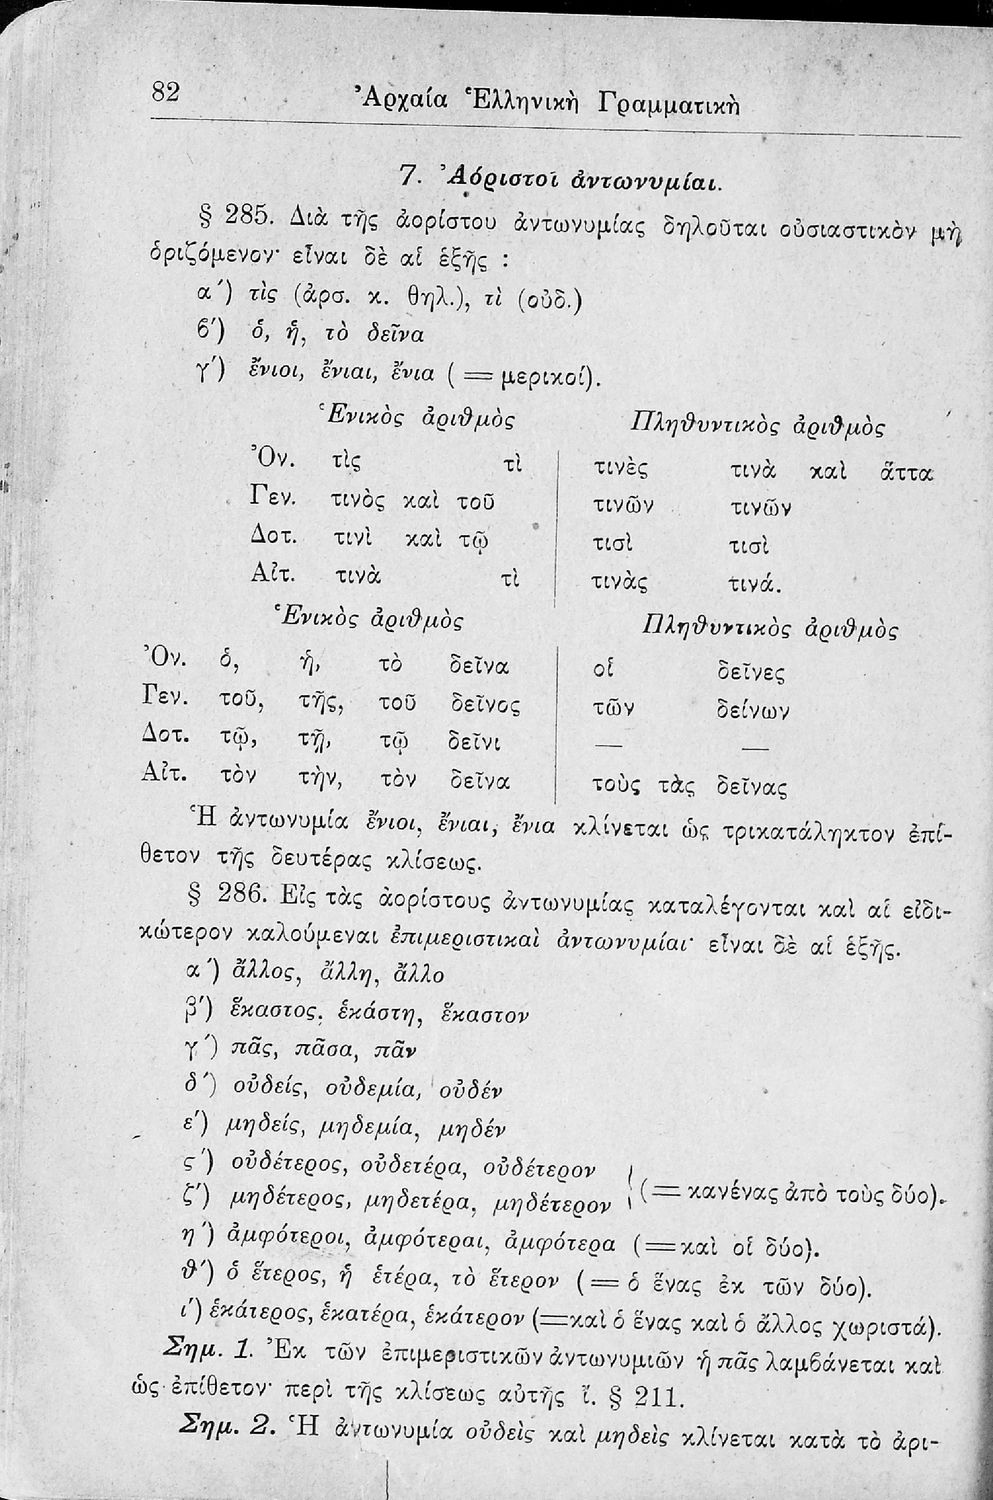 82 Ἀρχαία Ἑλληνικὴ Γραμματικὴ
7. Ἀόριστοι ἀντωνυμίαι.
§ 285. Διὰ τῆς ἀορίστου ἀντωνυμίας δηλοῦται οὐσιαστικὸν μὴ
ὁριζόμενον· εἶναι δὲ αἱ ἑξῆς :
α´) τὶς (ἀρσ. κ. θηλ.), τὶ (οὐδ.)
ϐ´) ὁ, ἡ, τὸ δεῖνα
γ´) ἔνιοι, ἔνιαι, ἔνια ( = μερικοί).
Ἑνικὸς ἀριθμὸς Πληθυντικὸς ἀριθμὸς
Ὀν. τὶς τὶ τινὲς τινὰ καὶ ἄττα
Γεν. τινὸς καὶ τοῦ τινῶν τινῶν
Δοτ. τινὶ καὶ τῷ τισὶ τισὶ
Αἰτ. τινὰ τὶ τινὰς τινά.
Ἑνικὸς ἀριθμὸς Πληθυντικὸς ἀριθμὸς
Ὀν. ὁ, ἡ, τὸ δεῖνα οἱ δεῖνες
Γεν. τοῦ, τῆς, τοῦ δεῖνος τῶν δείνων
Δοτ. τῷ, τῇ, τῷ δεῖνι — —
Αἰτ. τὸν τὴν, τὸν δεῖνα τοὺς τὰς δεῖνας
Ἡ ἀντωνυμία ἔνιοι, ἔνιαι, ἔνια κλίνεται ὡς τρικατάληκτον ἐπί-
θετον τῆς δευτέρας κλίσεως.
§ 286. Εἰς τὰς ἀορίστους ἀντωνυμίας καταλέγονται καὶ αἱ εἰδι-
κώτερον καλούμεναι ἐπιμεριστικαὶ ἀντωνυμίαι· εἶναι δὲ αἱ ἑξῆς.
α´) ἄλλος, ἄλλη, ἄλλο
β´) ἕκαστος, ἑκάστη, ἕκαστον
γ´) πᾶς, πᾶσα, πᾶν
δ´) οὐδείς, οὐδεμία, οὐδέν
ε´) μηδείς, μηδεμία, μηδέν
ς´) οὐδέτερος, οὐδετέρα, οὐδέτερον
ζ´) μηδέτερος, μηδετέρα, μηδέτερον (= κανένας ἀπὸ τοὺς δύο).
η´) ἀμφότεροι, ἀμφότεραι, ἀμφότερα (=καὶ οἱ δύο).
θ´) ὁ ἕτερος, ἡ ἑτέρα, τὸ ἕτερον (= ὁ ἕνας ἐκ τῶν δύο).
ι´) ἑκάτερος, ἑκατέρα, ἑκάτερον (=καὶ ὁ ἕνας καὶ ὁ ἄλλος χωριστά).
Σημ. 1. Ἐκ τῶν ἐπιμεριστικῶν ἀντωνυμιῶν ἡ πᾶς λαμϐάνεται καὶ
ὡς ἐπίθετον· περὶ τῆς κλίσεως αὐτῆς ἴ. § 211.
Σημ. 2. Ἡ ἀντωνυμία οὐδεὶς καὶ μηδεὶς κλίνεται κατὰ τὸ ἀρι-